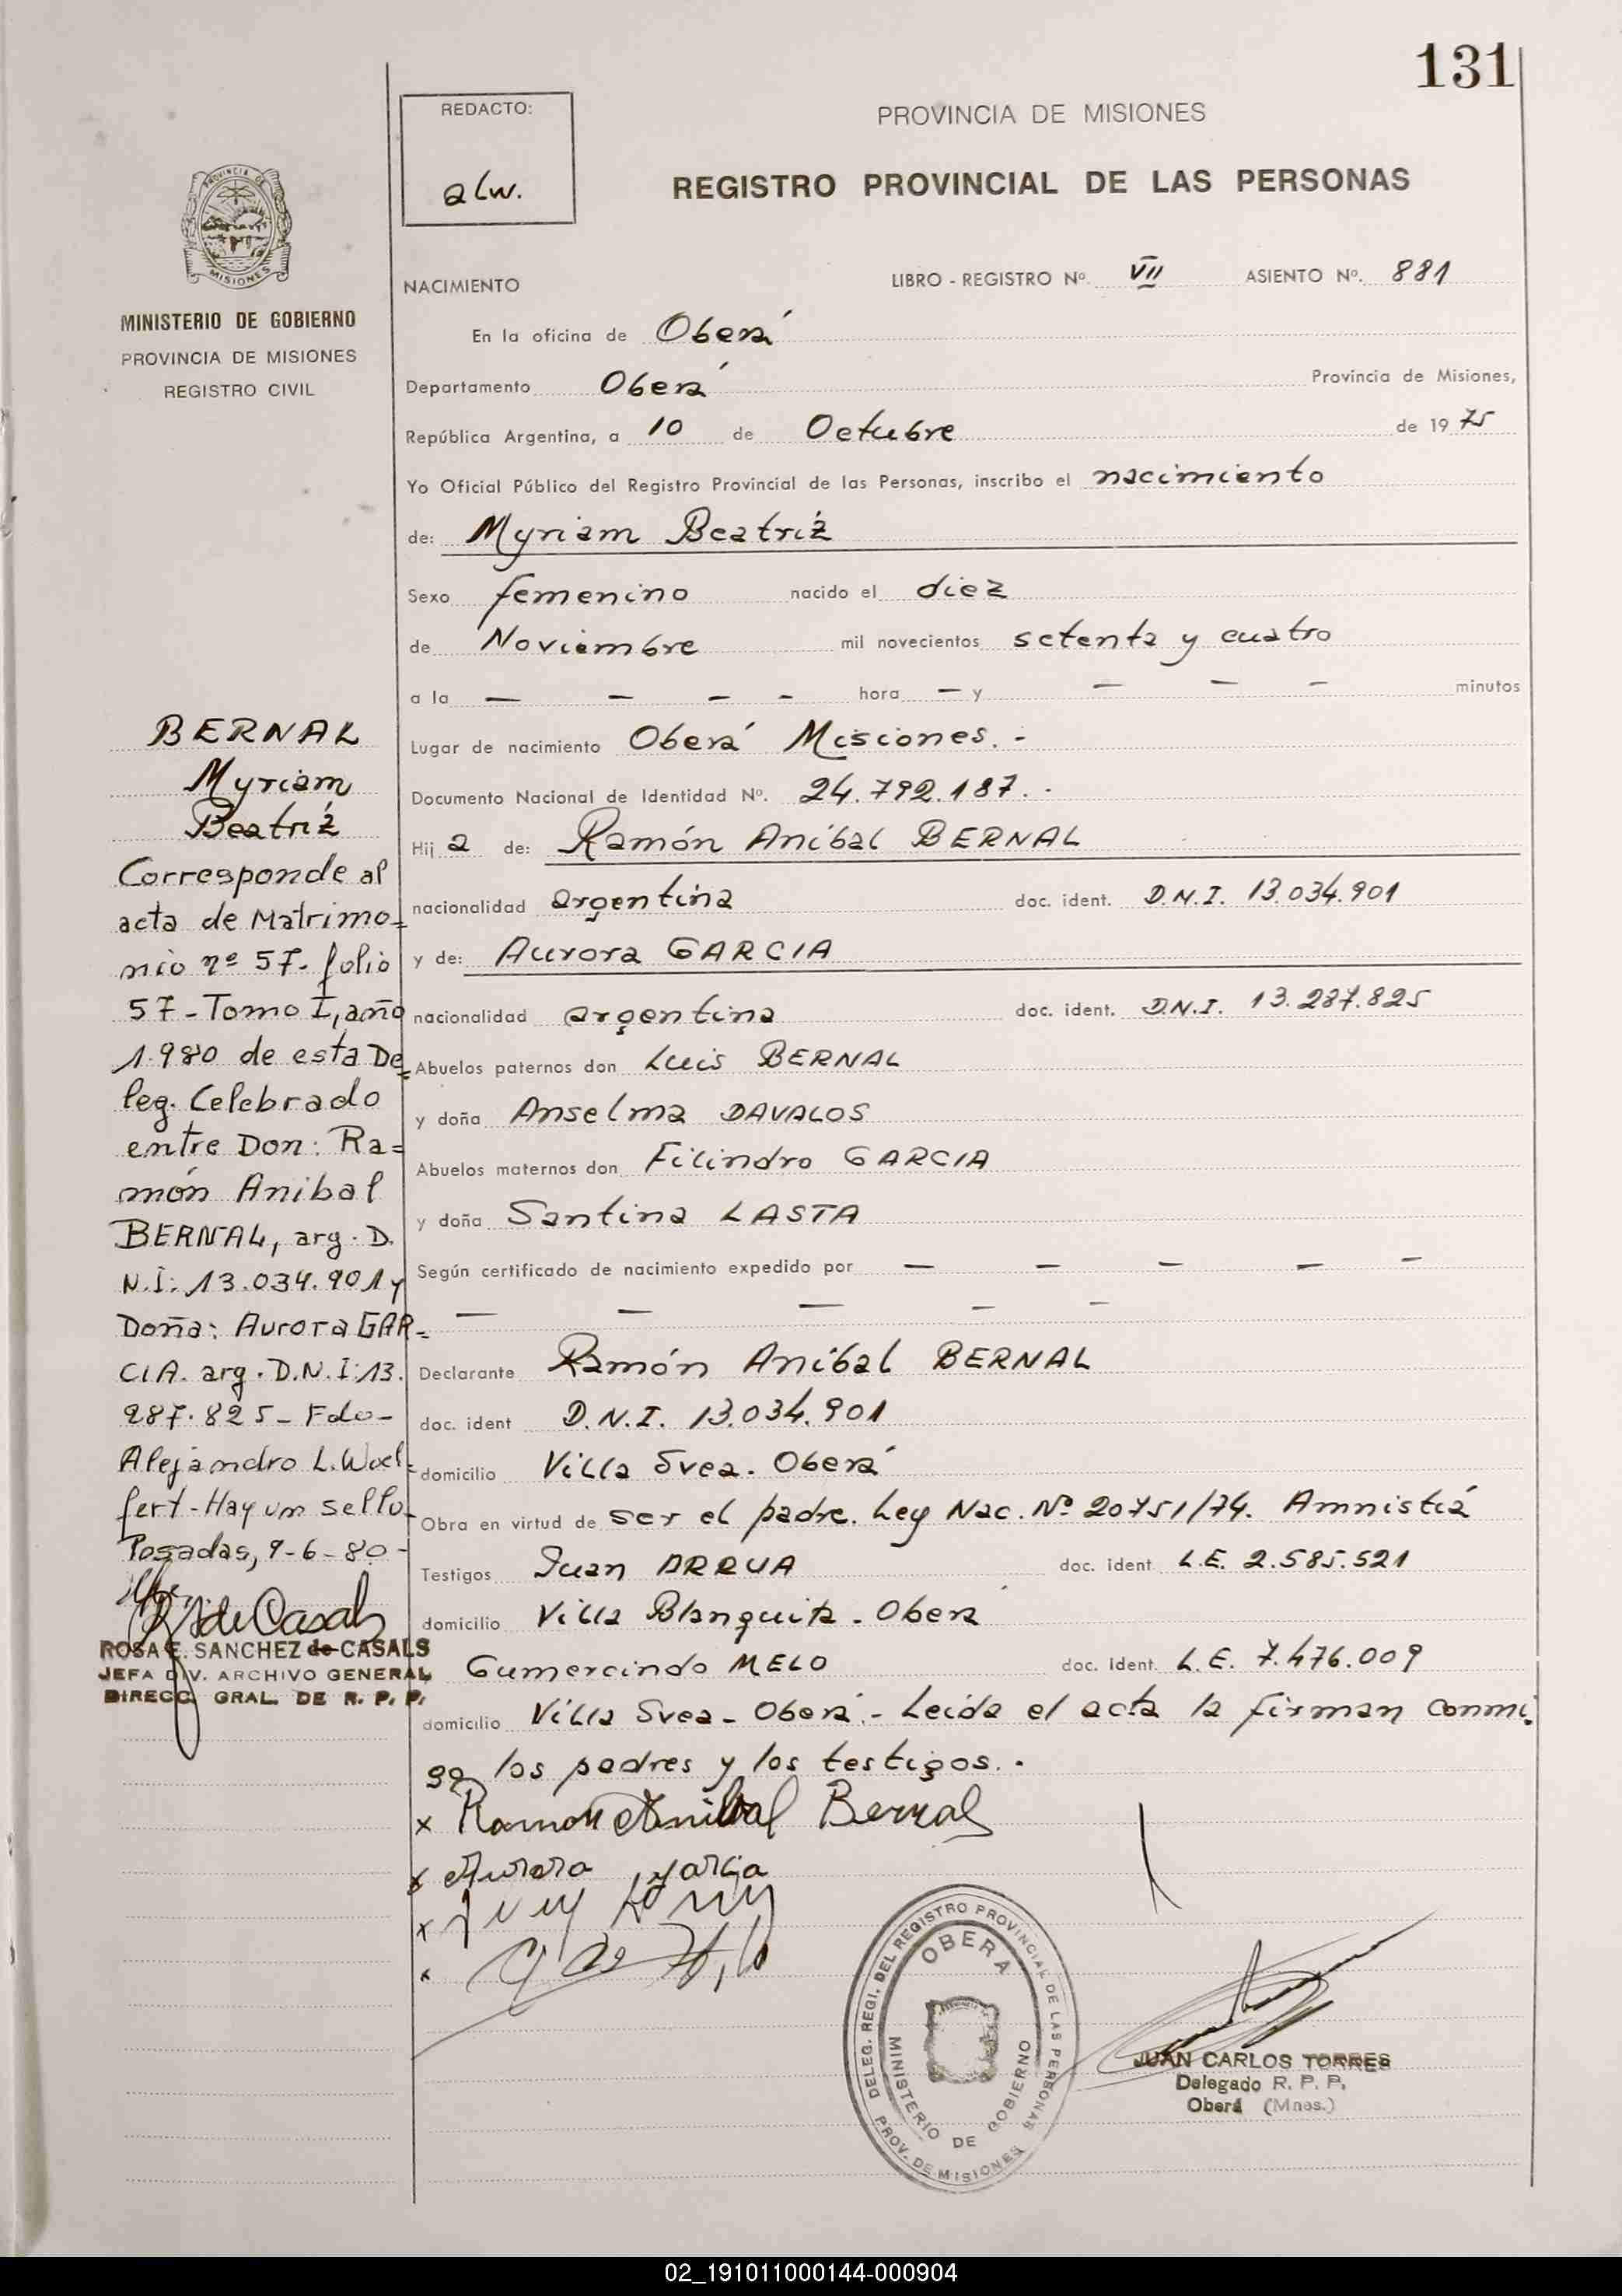 131
REDACTO:
alw.
PROVINCIA DE MISIONES
REGISTRO PROVINCIAL DE LAS PERSONAS
PROVINCIA DE
MISIONES
MINISTERIO DE GOBIERNO
PROVINCIA DE MISIONES
REGISTRO CIVIL
NACIMIENTO LIBRO - REGISTRO Nº. VII ASIENTO Nº. 881
En la oficina de Oberá
Departamento Oberá Provincia de Misiones,
República Argentina, a 10 de Octubre de 1975
Yo Oficial Público del Registro Provincial de las Personas, inscribo el nacimiento
de: Myriam Beatríz
Sexo femenino nacido el diez
de Noviembre mil novecientos setenta y cuatro
a la — — — — hora — y — — — minutos
Lugar de nacimiento Oberá Misiones. -
Documento Nacional de Identidad Nº. 24.792.187. -
Hija de: Ramón Aníbal BERNAL
nacionalidad argentina doc. ident. D.N.I. 13.034.901
y de: Aurora GARCIA
nacionalidad argentina doc. ident. D.N.I. 13.287.825
Abuelos paternos don Luis BERNAL
y doña Anselma DAVALOS
Abuelos maternos don Filindro GARCIA
y doña Santina LASTA
Según certificado de nacimiento expedido por — — — — —
— — — — —
Declarante Ramón Aníbal BERNAL
doc. ident D.N.I. 13.034.901
domicilio Villa Svea. Oberá
Obra en virtud de ser el padre. Ley Nac. Nº 20751/74. Amnistiá
Testigos Juan ARRUA doc. ident. L.E. 2.585.521
domicilio Villa Blanquita - Obera
Gumercindo MELO doc. ident. L.E. 7.476.009
domicilio Villa Svea - Oberá. - Leída el acta la firman conmi
go los padres y los testigos. -
x Ramon Anibal Bernal
x Aurora Garcia
x
x
BERNAL
Myriam
Beatríz
Corresponde al
acta de Matrimo=
nio nº 57. folio
57 - Tomo I, año
1.980 de esta De=
leg. Celebrado
entre Don: Ra=
món Anibal
BERNAL, arg. D.
N.I: 13.034.901 y
Doña: Aurora GAR=
CIA. arg. D.N.I: 13.
287.825 - Fdo-
Alejandro L. Woel=
fert - Hay un sello-
Posadas, 9-6-80-
R S de Casals
ROSA E. SANCHEZ de CASALS
JEFA DIV. ARCHIVO GENERAL
DIRECC. GRAL. DE R. P. P.
DELEG. REGI. DEL REGISTRO PROVINCIAL DE LAS PERSONAS
OBERA
MINISTERIO DE GOBIERNO
PROV. DE MISIONES
JUAN CARLOS TORRES
Delegado R. P. P.
Oberá (Mnes.)
02_191011000144-000904